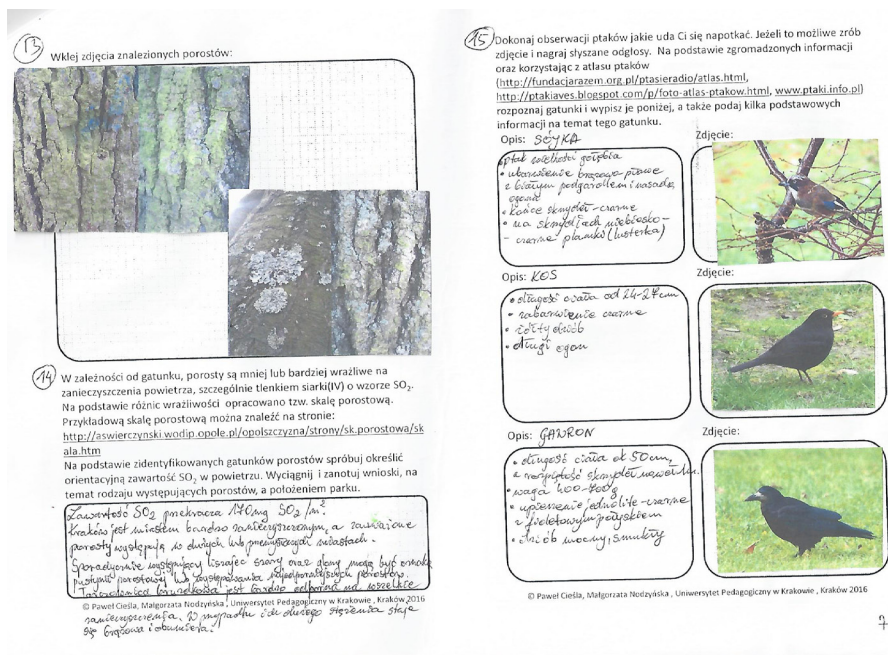 13
Wklej zdjęcia znalezionych porostów:
14
W zależności od gatunku, porosty są mniej lub bardziej wrażliwe na
zanieczyszczenia powietrza, szczególnie tlenkiem siarki(IV) o wzorze SO₂.
Na podstawie różnic wrażliwości opracowano tzw. skalę porostową.
Przykładową skalę porostową można znaleźć na stronie:
http://aswierczynski.wodip.opole.pl/opolszczyzna/strony/sk.porostowa/sk
ala.htm
Na podstawie zidentyfikowanych gatunków porostów spróbuj określić
orientacyjną zawartość SO₂ w powietrzu. Wyciągnij i zanotuj wnioski, na
temat rodzaju występujących porostów, a położeniem parku.
Zawartość SO₂ przekracza 170 mg SO₂/m².
Kraków jest miastem bardzo zanieczyszczonym, a zauważone
porosty występują w dużych lub przemysłowych miastach.
Sporadycznie występujący liszajec szary oraz glony mogą być oznaką
pustyni porostowej lub występowania najodporniejszych porostów.
jest bardzo odporna na wszelkie
© Paweł Cieśla, Małgorzata Nodzyńska, Uniwersytet Pedagogiczny w Krakowie, Kraków 2016
zanieczyszczenia. W wypadku ich dużego stężenia staje
się brązowa i obumiera.
15
Dokonaj obserwacji ptaków jakie uda Ci się napotkać. Jeżeli to możliwe zrób
zdjęcie i nagraj słyszane odgłosy. Na podstawie zgromadzonych informacji
oraz korzystając z atlasu ptaków
(http://fundacjarazem.org.pl/ptasieradio/atlas.html,
http://ptakiaves.blogspot.com/p/foto-atlas-ptakow.html, www.ptaki.info.pl)
rozpoznaj gatunki i wypisz je poniżej, a także podaj kilka podstawowych
informacji na temat tego gatunku.
Opis: SÓJKA Zdjęcie:
• ptak wielkości gołębia
• ubarwienie brązowo-płowe
z białym podgardlem i nasadą
ogona
• końce skrzydeł - czarne
• na skrzydłach niebiesko-
- czarne plamki (lusterka)
Opis: KOS Zdjęcie:
• długość ciała od 24-27cm
• zabarwienie czarne
• żółty dziób
• długi ogon
Opis: GAWRON Zdjęcie:
• długość ciała ok 50cm,
a rozpiętość skrzydeł
• waga 400-700g
• upierzenie jednolite - czarne
z fioletowym połyskiem
• dziób mocny, smukły
© Paweł Cieśla, Małgorzata Nodzyńska, Uniwersytet Pedagogiczny w Krakowie, Kraków 2016
7